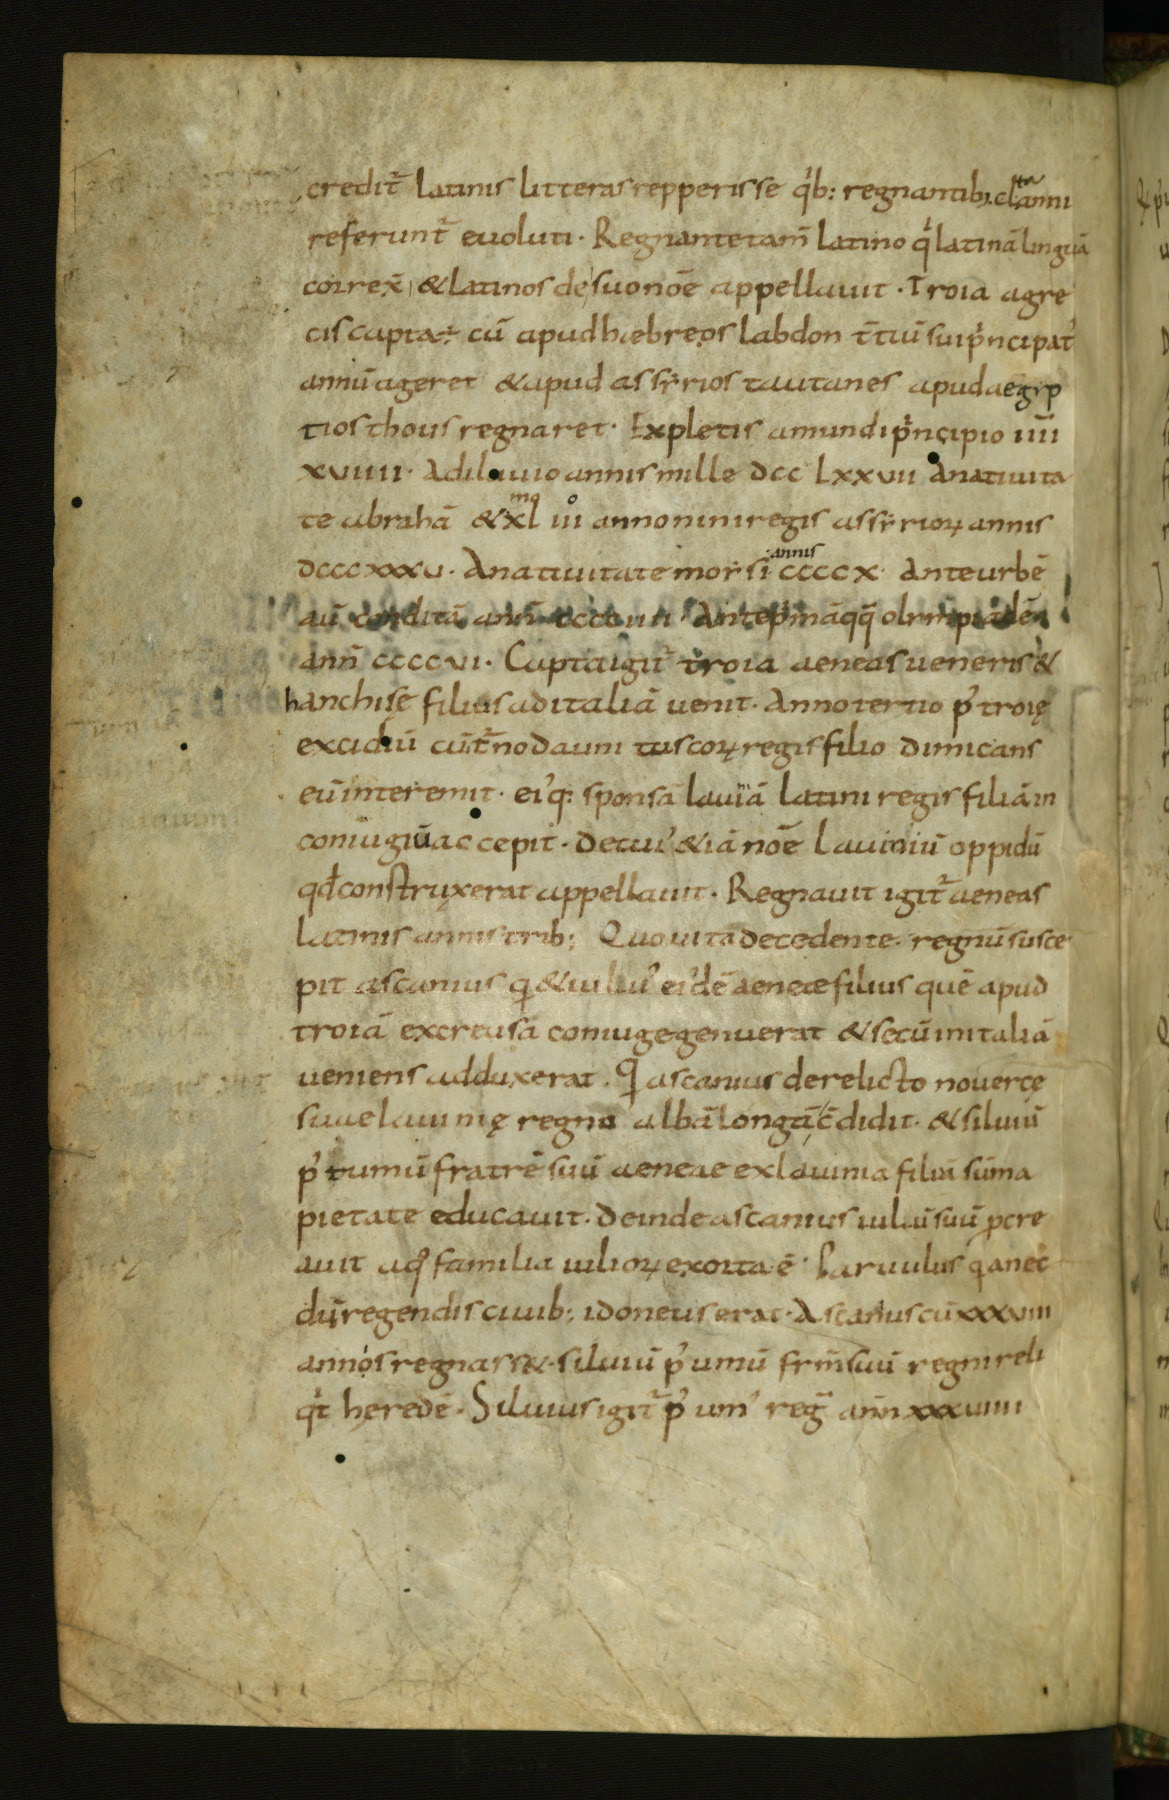 credit̃ latinis litteras repperisse qͥb: regnantib; cl ta anni
referunt̃ euoluti. Regnante tam̃ latino qͥ latinā linguā
correx̃ & latinos de suo nōe appellauit. Troia agre
cis capta ÷ cū apud hæbreos labdon t̃tiū sui pͥncipat᾽
annū ageret & apud assyrios tautanes apud aegip
tios thous regnaret. Expletis a mundi pͥncipio iiii̅
xviiii. A diluuio annis mille dcc lxxvii A natiuita
te abrahā & xl mo iii o anno nini regis assyrioꝝ annis
dcccxxxv. A natiuitate moysi annis ccccx. Ante urbē
aū conditā ann̄ cccciiii Ante pͥmā qq̄ olympiadē
ann̄ ccccvi. Capta igit̃ troia aeneas ueneris &
hanchisę filius ad italiā uenit. Anno tertio p᾽ troię
excidiū cū t̃no dauni tuscoꝝ regis filio dimicans
eū interemit. ei᾽q: sponsā lauiā latini regis filiā in
coniugiū accepit. De cui᾽ & iā nōe Lauiniū oppidū
qd̄ construxerat appellauit. Regnauit igit̃ aeneas
latinis annis trib; Quo uita decedente. regnū susce
pit ascanius q & iuliu᾽ ei᾽dē aeneæ filius quē apud
troiā ex creusa coniuge genuerat & secū in italiā
ueniens adduxerat. Q ascanius derelicto nouercę
suae lauinię regno albā longā c̄didit. & siluiū
p᾽tumū fratrē suū aeneae ex lauinia filiū sūma
pietate educauit. Deinde ascanius iuliū suū pcre
auit a qͦ familia iulioꝝ exorta ē. Paruulus q a nec
dū regendis ciuib; idoneus erat. Ascanius cū xxxviii
annos regnass& siluiū p᾽umū frm̄ suū regni reli
qͥt heredē. Siluius igit̃ p᾽um᾽ reg̃ ann̄ xxxviiii